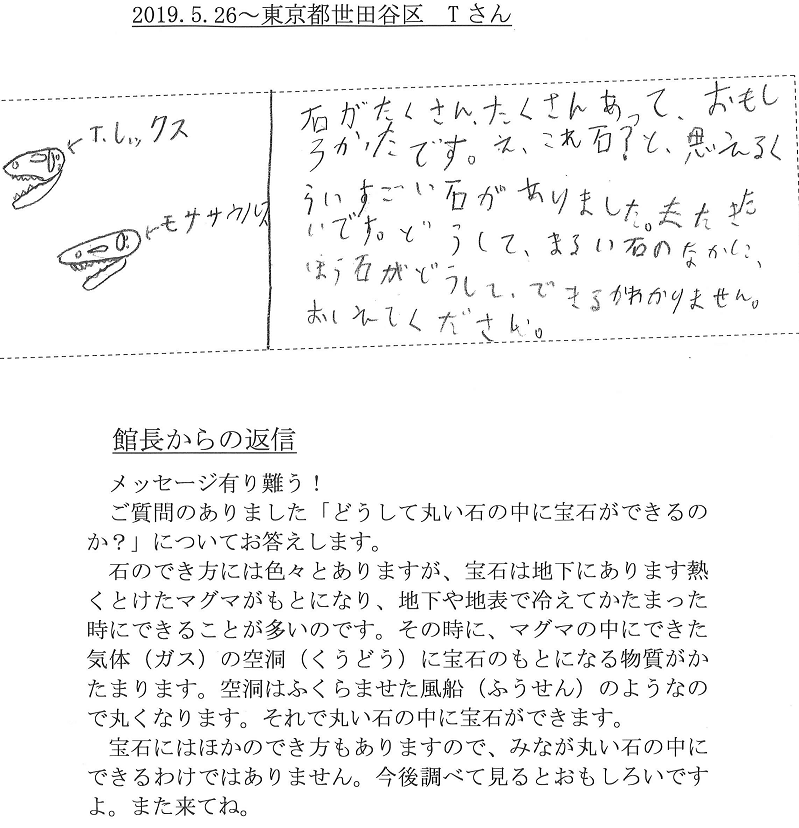 2019.5.26～東京都世田谷区　Tさん
T.レックス
モササウルス
石がたくさん、たくさんあって、おもし
ろかたです。え、これ石？と、思えるく
らいすごい石がありました。またきた
いです。どうして、まるい石のなかに、
ほう石がどうして、できるがわかりません。
おしえてくださん。
館長からの返信
メッセージ有り難う！
ご質問のありました「どうして丸い石の中に宝石ができるの
か？」についてお答えします。
石のでき方には色々とありますが、宝石は地下にあります熱
くとけたマグマがもとになり、地下や地表で冷えてかたまった
時にできることが多いのです。その時に、マグマの中にできた
気体（ガス）の空洞（くうどう）に宝石のもとになる物質がか
たまります。空洞はふくらませた風船（ふうせん）のようなの
で丸くなります。それで丸い石の中に宝石ができます。
宝石にはほかのでき方もありますので、みなが丸い石の中に
できるわけではありません。今後調べて見るとおもしろいです
よ。また来てね。